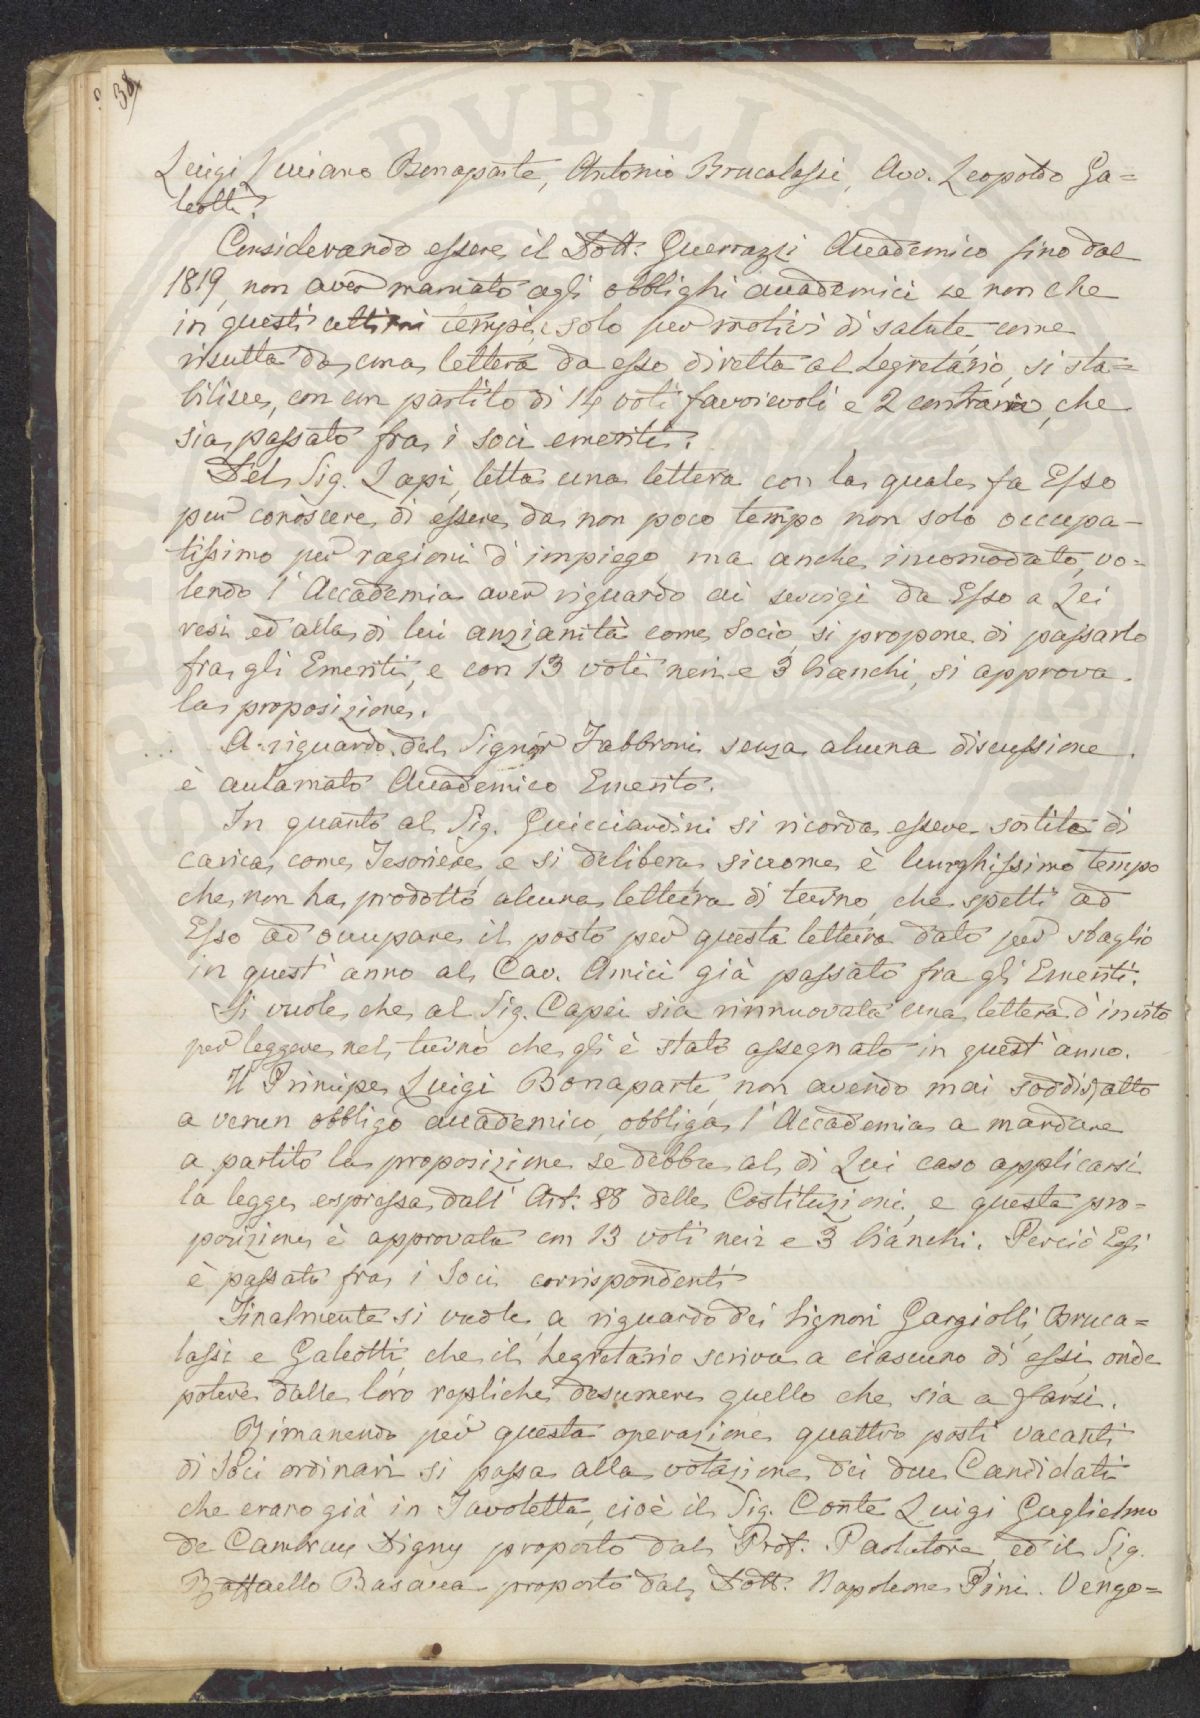 38
Luigi Luciano Bonaparte, Antonio Brucalassi, Avv. Leopoldo Ga=
leotti.
Considerando essere il Dott. Guerrazzi Accademico fino dal
1819, non aver mancato agli obblighi accademici se non che
in questi ultimi tempi, e solo per motivi di salute, come
risulta da una lettera da esso diretta al Segretario, si sta=
bilisce, con un partito di 14 voti favorevoli e 2 contrari, che
sia passato fra i soci emeriti.
Del Sig. Lapi, letta una lettera con la quale fa Esso
pur conoscere di essere da non poco tempo non solo occupa-
tissimo per ragioni d'impiego, ma anche incomodato, vo-
lendo l'Accademia aver riguardo ai servigi da Esso a Lei
resi ed alla di lui anzianità come Socio, si propone di passarlo
fra gli Emeriti, e con 13 voti neri e 3 bianchi, si approva
la proposizione.
A riguardo del Signor Fabbroni senza alcuna discussione
è aclamato Accademico Emerito.
In quanto al Sig. Guicciardini si ricorda essere sortito di
carica come Tesoriere, e si delibera, siccome è lunghissimo tempo
che non ha prodotto alcuna lettura di turno, che spetti ad
Esso ad occupare il posto per questa lettura dato per sbaglio
in quest'anno al Cav. Amici già passato fra gli Emeriti.
Si vuole che al Sig. Capei sia rinnuovata una lettera d'invito
per leggere nel turno che gli è stato assegnato in quest'anno.
Il Principe Luigi Bonaparte, non avendo mai soddisfatto
a verun obbligo accademico, obbliga l'Accademia a mandare
a partito la proposizione se debba al di Lui caso applicarsi
la legge espressa dall'Art. 88 delle Costituzioni, e questa pro-
posizione è approvata con 13 voti neri e 3 bianchi. Perciò Egli
è passato fra i Soci corrispondenti
Finalmente si vuole, a riguardo dei Signori Gargiolli, Bruca=
lassi e Galeotti, che il Segretario scriva a ciascuno di essi, onde
potere dalle loro repliche desumere quello che sia a farsi.
Rimanendo per questa operazione quattro posti vacanti
di Soci ordinari si passa alla votazione dei due Candidati
che erano già in Tavoletta, cioè il Sig. Conte Luigi Guglielmo
de Cambray Digny proposto dal Prof. Parlatore, ed il Sig.
Raffaello Basarea proposto dal Dott. Napoleone Pini. Vengo=